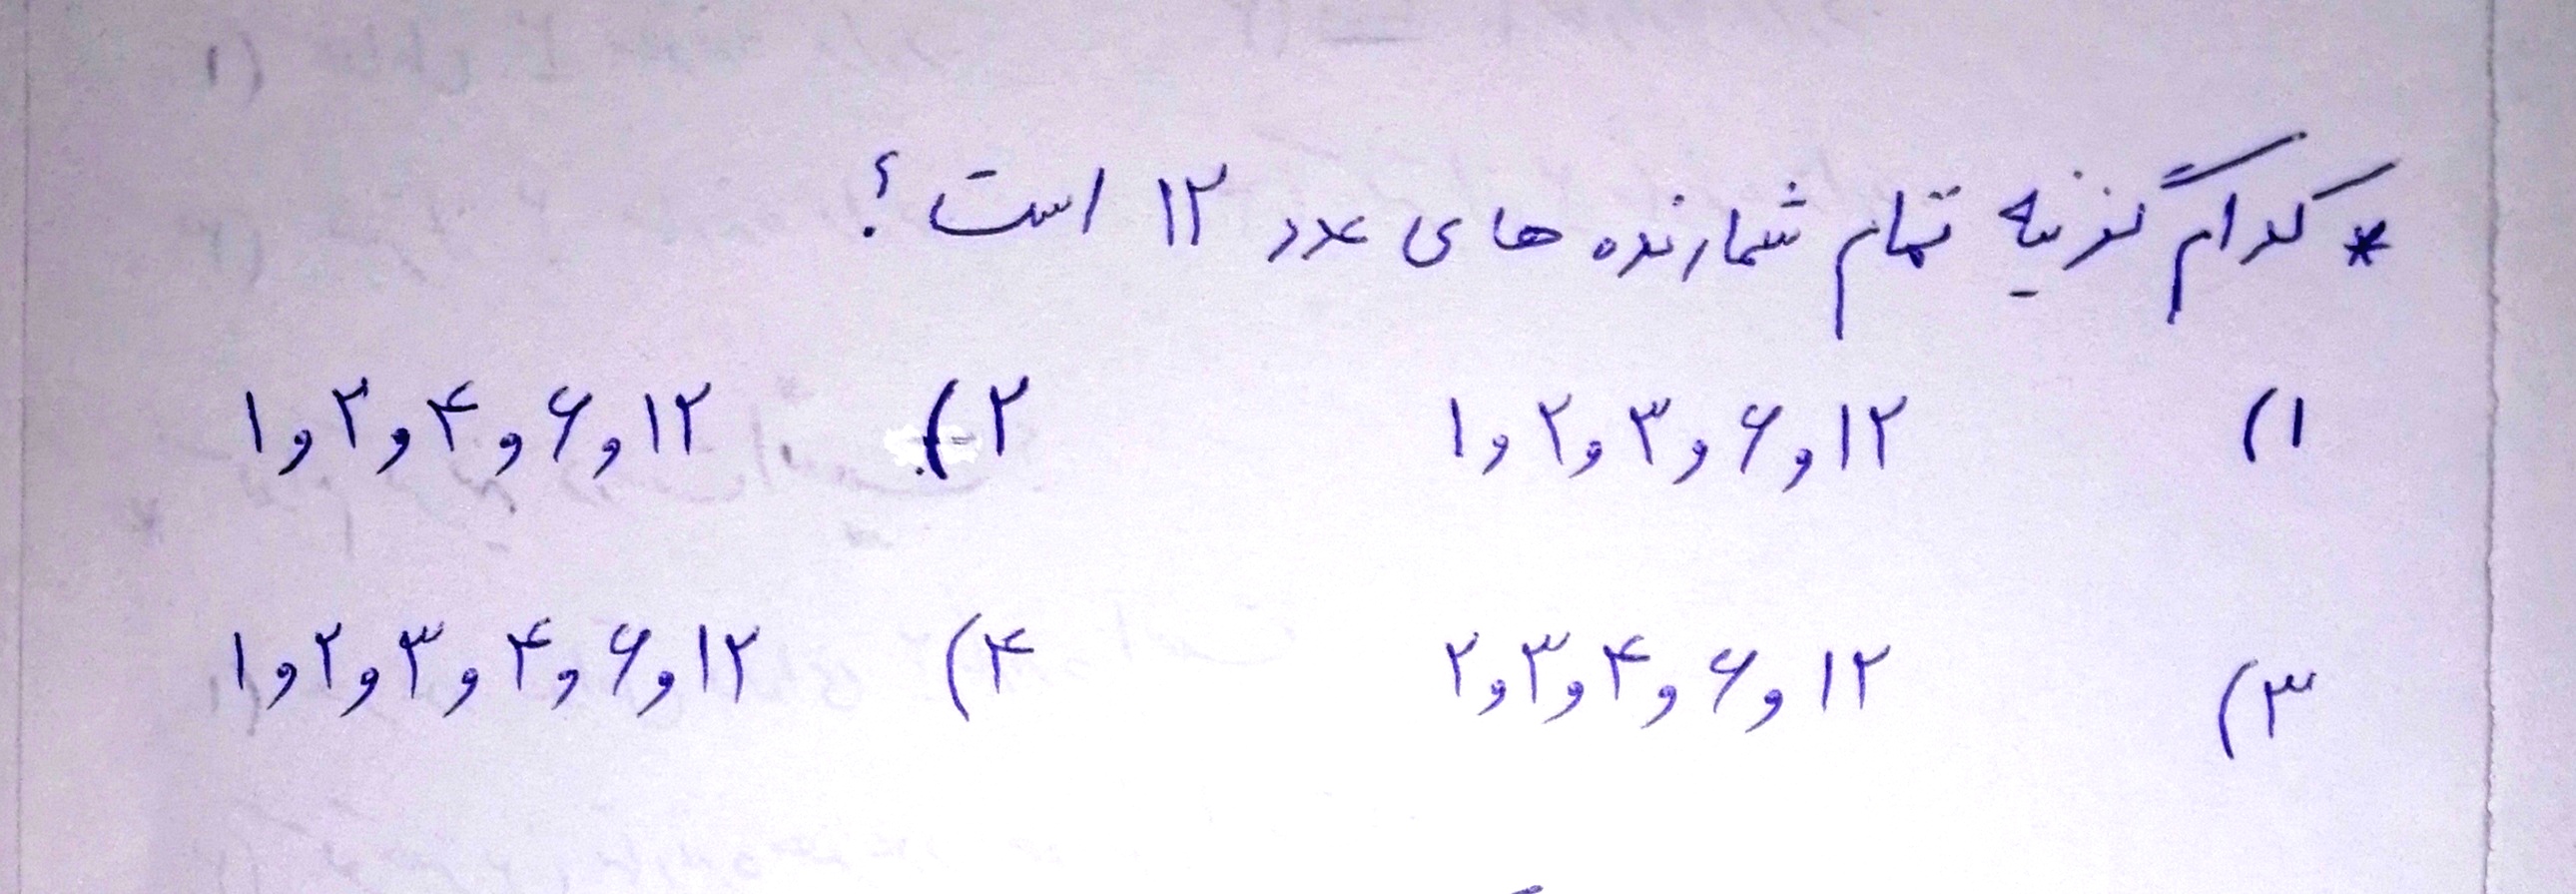 * کدام گزینه تمام شمارنده های عدد ۱۲ است؟
۱) ۱,۲,۳,۶,۱۲ ۲) ۱,۲,۴,۶,۱۲
۳) ۲,۳,۴,۶,۱۲ ۴) ۱,۲,۳,۴,۶,۱۲